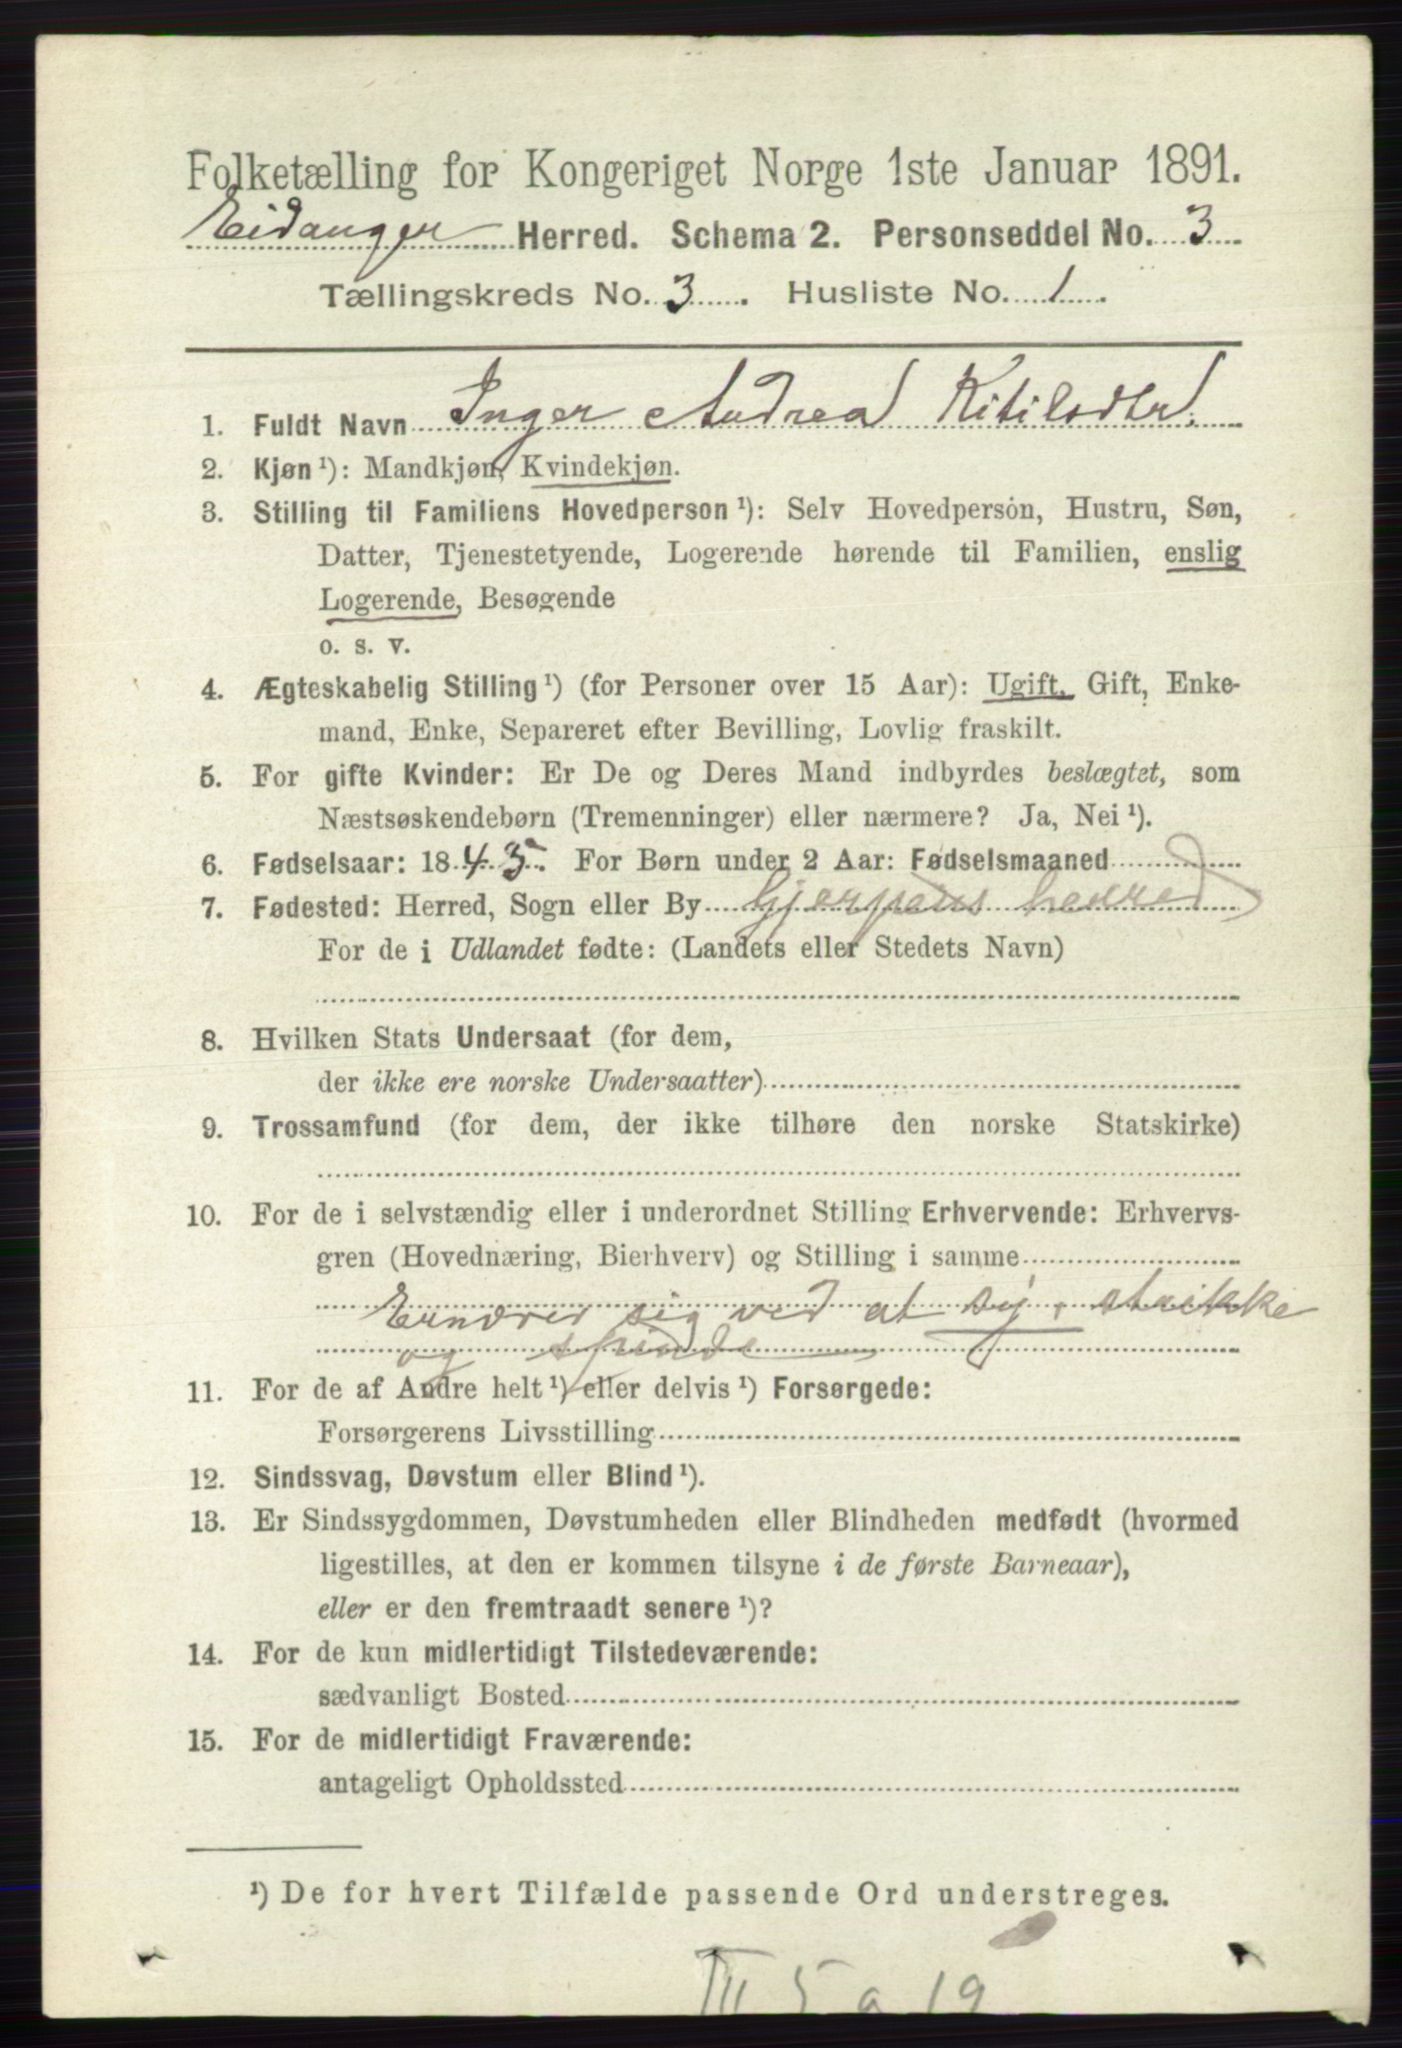 Folketælling for Kongeriget Norge 1ste Januar 1891.
Eidanger Herred. Schema 2. Personseddel No. 3
Tællingskreds No. 3. Husliste No. 1.
1. Fuldt Navn Inger Andrea Kitilsdtr.
2. Kjøn ¹): Mandkjøn, Kvindekjøn.
3. Stilling til Familiens Hovedperson ¹): Selv Hovedperson, Hustru, Søn,
Datter, Tjenestetyende, Logerende hørende til Familien, enslig
Logerende, Besøgende
o. s. v.
4. Ægteskabelig Stilling ¹) (for Personer over 15 Aar): Ugift, Gift, Enke-
mand, Enke, Separeret efter Bevilling, Lovlig fraskilt.
5. For gifte Kvinder: Er De og Deres Mand indbyrdes beslægtet, som
Næstsøskendebørn (Tremenninger) eller nærmere? Ja, Nei ¹).
6. Fødselsaar: 1843. For Børn under 2 Aar: Fødselsmaaned
7. Fødested: Herred, Sogn eller By Gjerpens herred
For de i Udlandet fødte: (Landets eller Stedets Navn)
8. Hvilken Stats Undersaat (for dem,
der ikke ere norske Undersaatter)
9. Trossamfund (for dem, der ikke tilhøre den norske Statskirke)
10. For de i selvstændig eller i underordnet Stilling Erhvervende: Erhvervs-
gren (Hovednæring, Bierhverv) og Stilling i samme
Ernærer sig ved at sy, strikke
og spinde
11. For de af Andre helt ¹) eller delvis ¹) Forsørgede:
Forsørgerens Livsstilling
12. Sindssvag, Døvstum eller Blind ¹).
13. Er Sindssygdommen, Døvstumheden eller Blindheden medfødt (hvormed
ligestilles, at den er kommen tilsyne i de første Barneaar),
eller er den fremtraadt senere ¹)?
14. For de kun midlertidigt Tilstedeværende:
sædvanligt Bosted
15. For de midlertidigt Fraværende:
antageligt Opholdssted
¹) De for hvert Tilfælde passende Ord understreges.
III 5 a 19